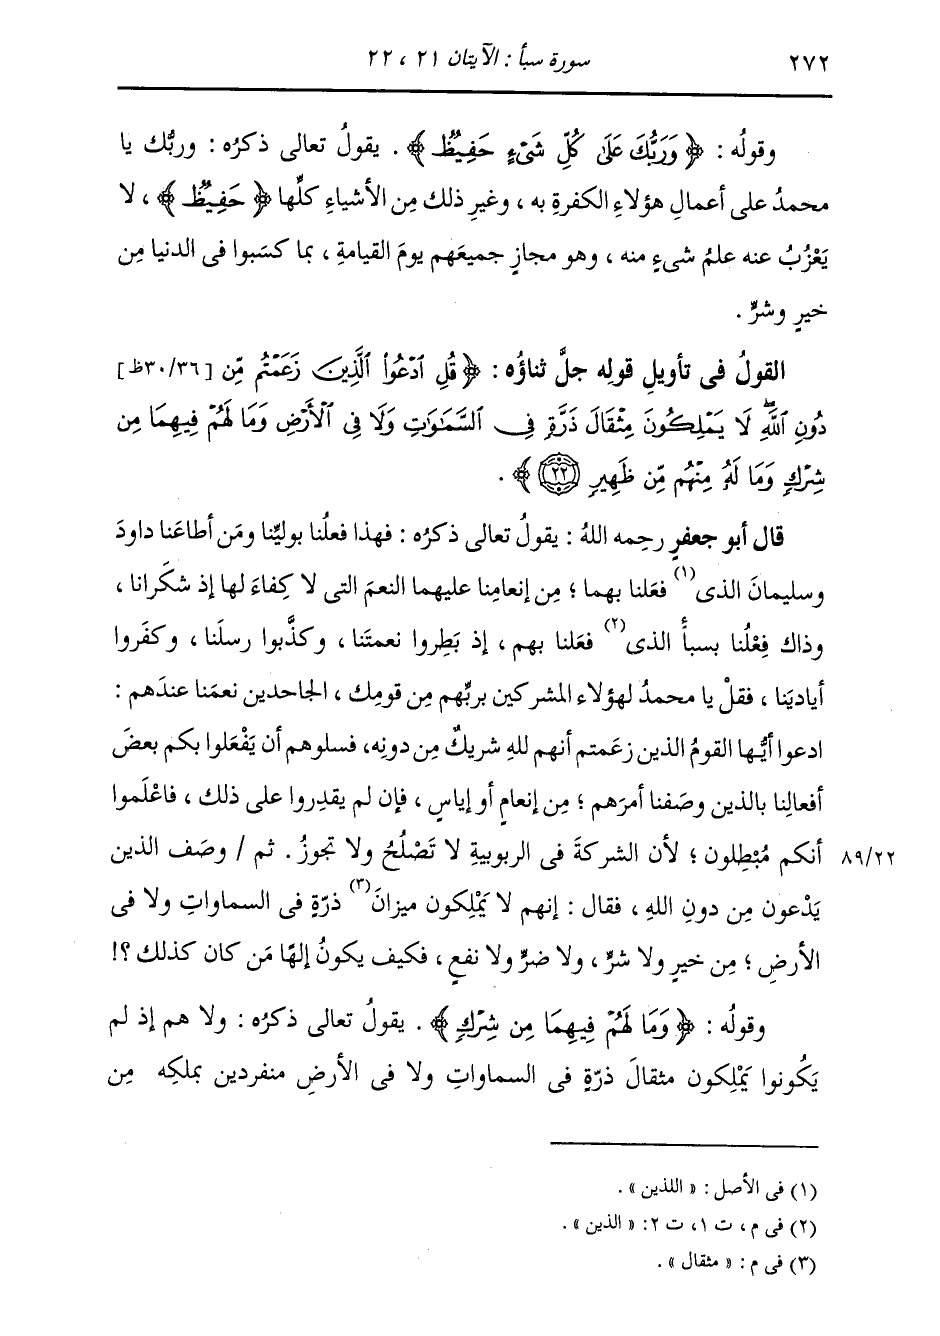 ٢٧٢ سورة سبأ : الآيتان ٢١ ، ٢٢
وقولُه : ﴿ وَرَبُّكَ عَلَىٰ كُلِّ شَىْءٍ حَفِيظٌ ﴾ . يقولُ تعالى ذكرُه : وربُّك يا
محمدُ على أعمالِ هؤلاءِ الكفرةِ به ، وغيرِ ذلك مِن الأشياءِ كلِّها ﴿ حَفِيظٌ ﴾ ، لا
يَعْزُبُ عنه علمُ شىءٍ منه ، وهو مجازٍ جميعَهم يومَ القيامةِ ، بما كسَبوا فى الدنيا مِن
خيرٍ وشرٍّ .
القولُ فى تأويلِ قولِه جلَّ ثناؤُه : ﴿ قُلِ ٱدْعُوا۟ ٱلَّذِينَ زَعَمْتُم مِّن [٣٠/٣٦ظ]
دُونِ ٱللَّهِۖ لَا يَمْلِكُونَ مِثْقَالَ ذَرَّةٍ فِى ٱلسَّمَٰوَٰتِ وَلَا فِى ٱلْأَرْضِ وَمَا لَهُمْ فِيهِمَا مِن
شِرْكٍ وَمَا لَهُۥ مِنْهُم مِّن ظَهِيرٍ ٢٢ ﴾ .
قال أبو جعفرٍ رحِمه اللهُ : يقولُ تعالى ذكرُه : فهذا فعلُنا بوليِّنا ومَن أطاعَنا داودَ
وسليمانَ الذى(١) فعَلنا بهما ؛ مِن إنعامِنا عليهما النعمَ التى لا كِفاءَ لها إذ شكَرانا ،
وذاك فِعْلُنا بسبأً الذى(٢) فعَلنا بهم ، إذ بَطِروا نعمتَنا ، وكذَّبوا رسلَنا ، وكفَروا
أيادينَا ، فقلْ يا محمدُ لهؤلاء المشركين بربِّهم مِن قومِك ، الجاحدين نعمَنا عندَهم :
ادعوا أيُّها القومُ الذين زعَمتم أنهم للهِ شريكٌ مِن دونِه، فسلوهم أن يَفْعَلوا بكم بعضَ
أفعالِنا بالذين وصَفنا أمرَهم ؛ مِن إنعامٍ أو إياسٍ ، فإن لم يقدِروا على ذلك ، فاعْلَموا
أنكم مُبْطِلون ؛ لأن الشركةَ فى الربوبيةِ لا تَصْلُحُ ولا تجوزُ . ثم / وصَف الذين ٨٩/٢٢
يَدْعون مِن دونِ اللهِ ، فقال : إنهم لا يَمْلِكون ميزانَ(٣) ذرّةٍ فى السماواتِ ولا فى
الأرضِ ؛ مِن خيرٍ ولا شرٍّ ، ولا ضرٍّ ولا نفعٍ ، فكيف يكونُ إلهًا مَن كان كذلك ؟!
وقولُه : ﴿ وَمَا لَهُمْ فِيهِمَا مِن شِرْكٍ ﴾ . يقولُ تعالى ذكرُه : ولا هم إذ لم
يَكُونوا يَمْلِكون مثقالَ ذرّةٍ فى السماواتِ ولا فى الأرضِ منفردين بملكِه مِن
(١) فى الأصل : « اللذين » .
(٢) فى م ، ت ١، ت ٢: « الذين » .
(٣) فى م : « مثقال » .